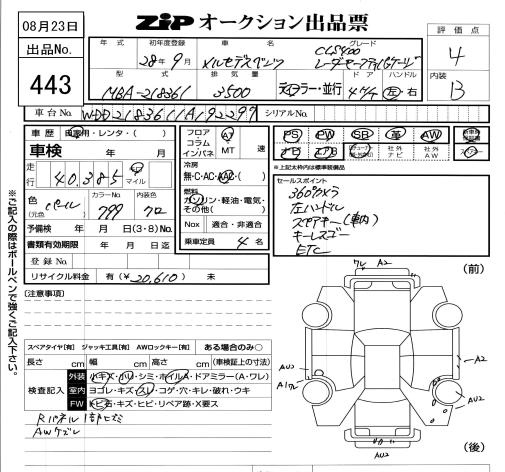 08月23日
出品No.
443
ZiP オークション出品票
評価点
4
内装
B
年式 初年度登録 車名 グレード
28年9月 メルセデスベンツ CLS400
レーダーセーフティパッケージ
型式 排気量 ドア ハンドル
MBA-218361 3500 ディーラー・並行 4ドア 左・右
車台No. WDD2183611A192297 シリアルNo.
車歴 自家用・レンタ・( )
車検 年 月
走行 40,385 km マイル
色(元色) パール カラーNo. 799 内装色 クロ
予備検 年 月 日(3・8)No.
書類有効期限 年 月 日迄
登録No.
リサイクル料金 有(¥20,610) 未
フロア コラム インパネ AT MT 速
冷房
無・C・AC・AAC・( )
燃料
ガソリン・軽油・電気・その他( )
Nox 適合・非適合
乗車定員 4 名
PS PW SR 革 AW
ナビ エアB 社外ナビ 社外AW
※上記太枠内は標準装備品
セールスポイント
360°カメラ
左ハンドル
スペアキー(車内)
キーレスゴー
ETC
[注意事項]
スペアタイヤ[有] ジャッキ工具[有] AWロックキー[有] ある場合のみ○
長さ cm 幅 cm 高さ cm (車検証上の寸法)
検査記入
外装 小キズ・小ヘコ・シミ・ホイルA・ドアミラー(A・ワレ)
室内 ヨゴレ・キズ・スレ・コゲ・穴・キレ・破れ・ウキ
FW トビ石・キズ・ヒビ・リペア跡・X要ス
Rパネル1部ヒズミ
AWケズレ
※ご記入の際はボールペンで強くご記入下さい。
(前)
ワレ A2
A2
AU2
A1 ワレ
AU2
AU2
(後)